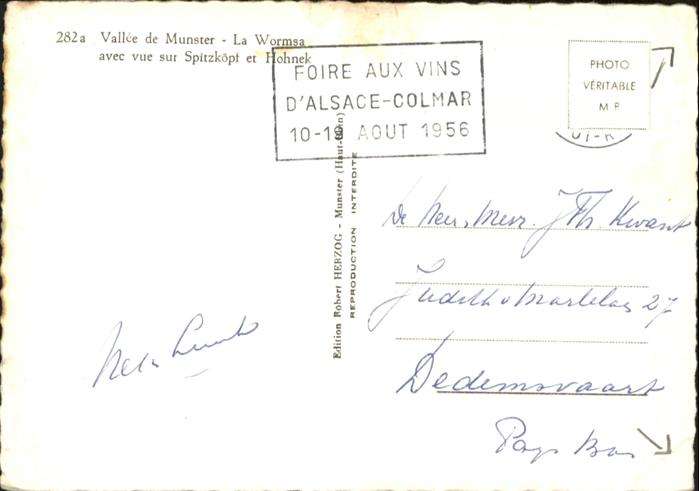 282a Vallée de Munster - La Wormsa
avec vue sur Spitzköpf et Hohnek
FOIRE AUX VINS
D'ALSACE-COLMAR
10-19 AOUT 1956
PHOTO
VÉRITABLE
M P
Edition Robert HERZOG - Munster (Haut-Rhin)
REPRODUCTION INTERDITE
Mevr. J Th. Kwant
Judith v Martelaan 27
Dedemsvaart
Pays Bas